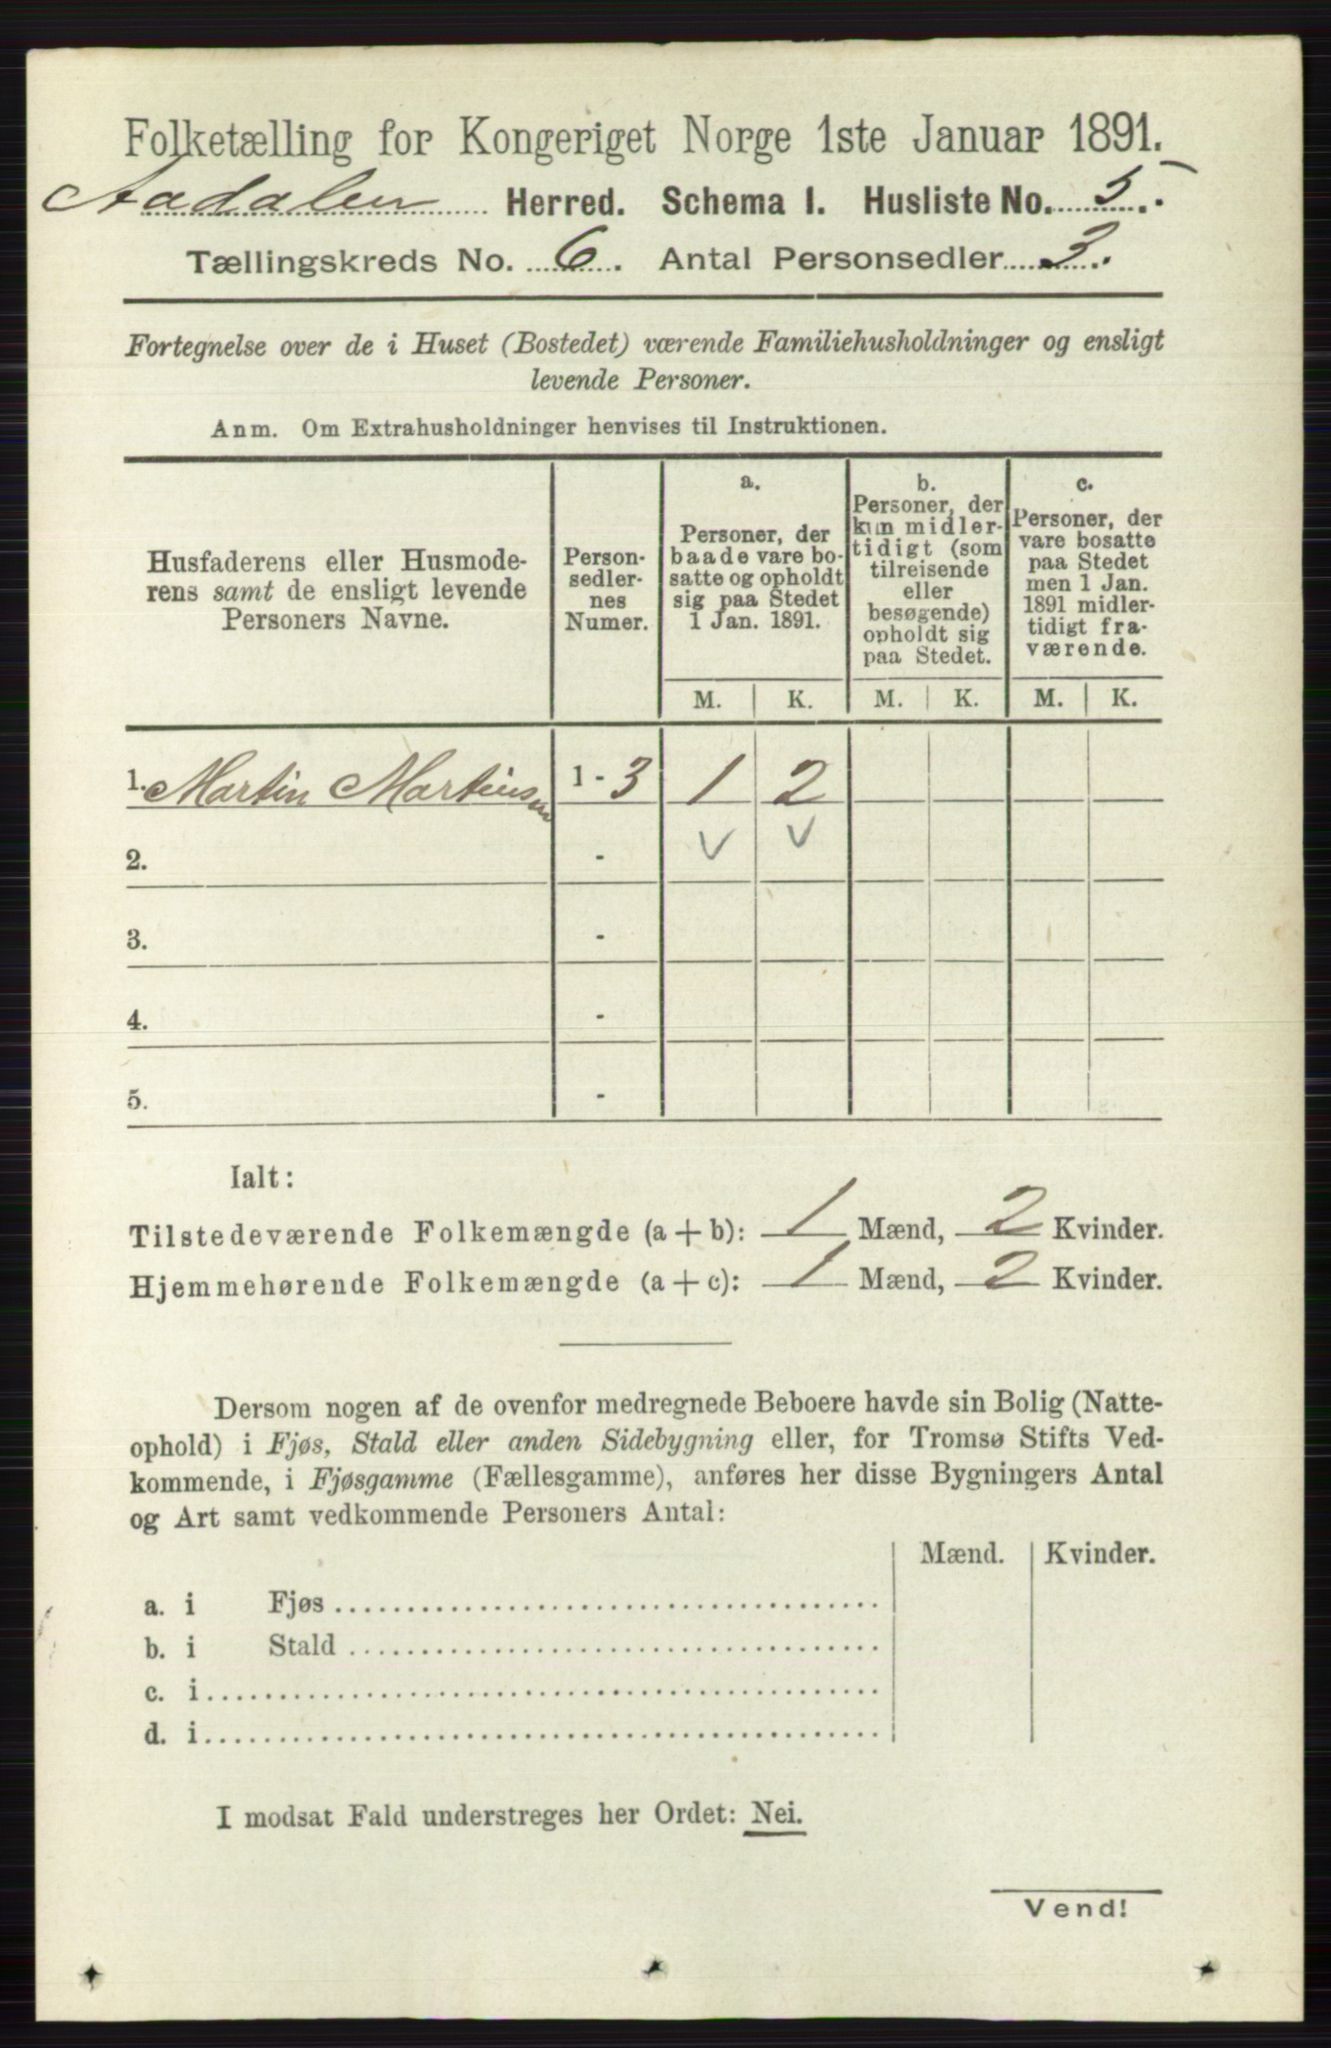 Folketælling for Kongeriget Norge 1ste Januar 1891.
Aadalen Herred. Schema I. Husliste No. 5.
Tællingskreds No. 6. Antal Personsedler 3.
Fortegnelse over de i Huset (Bostedet) værende Familiehusholdninger og ensligt
levende Personer.
Anm. Om Extrahusholdninger henvises til Instruktionen.
Husfaderens eller Husmode-
rens samt de ensligt levende
Personers Navne.
Person-
sedler-
nes
Numer.
a.
Personer, der
baade vare bo-
satte og opholdt
sig paa Stedet
1 Jan. 1891.
b.
Personer, der
kun midler-
tidigt (som
tilreisende
eller
besøgende)
opholdt sig
paa Stedet.
c.
Personer, der
vare bosatte
paa Stedet
men 1 Jan.
1891 midler-
tidigt fra-
værende.
M. K. M. K. M. K.
1. Martin Martinsen 1 - 3 1 2
2. - v v
3. -
4. -
5. -
Ialt:
Tilstedeværende Folkemængde (a + b): 1 Mænd, 2 Kvinder.
Hjemmehørende Folkemængde (a + c): 1 Mænd, 2 Kvinder.
Dersom nogen af de ovenfor medregnede Beboere havde sin Bolig (Natte-
ophold) i Fjøs, Stald eller anden Sidebygning eller, for Tromsø Stifts Ved-
kommende, i Fjøsgamme (Fællesgamme), anføres her disse Bygningers Antal
og Art samt vedkommende Personers Antal:
Mænd. Kvinder.
a. i Fjøs
b. i Stald
c. i
d. i
I modsat Fald understreges her Ordet: Nei.
Vend!